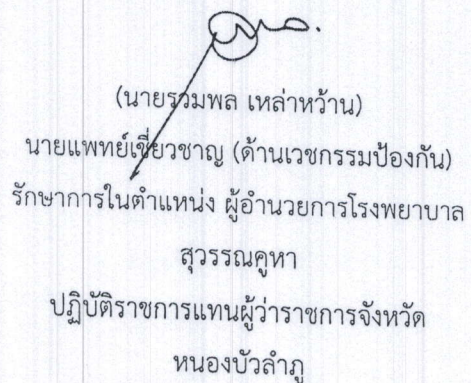 (นายรวมพล เหล่าหว้าน)
นายแพทย์เชี่ยวชาญ (ด้านเวชกรรมป้องกัน)
รักษาการในตำแหน่ง ผู้อำนวยการโรงพยาบาล
สุวรรณคูหา
ปฏิบัติราชการแทนผู้ว่าราชการจังหวัด
หนองบัวลำภู